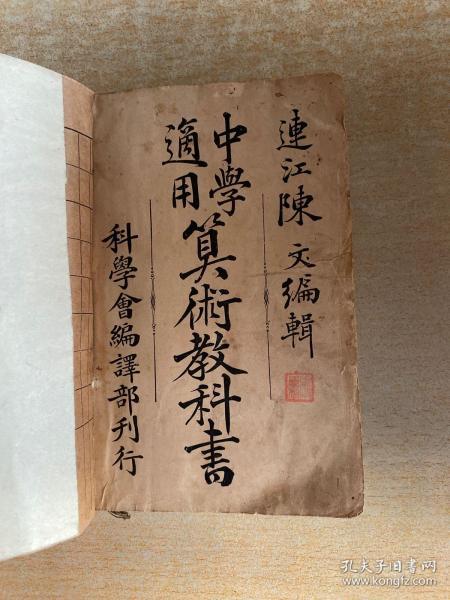 連江陳文編輯
中學適用
算術教科書
科學會編譯部刊行
孔夫子旧书网
www.kongfz.com